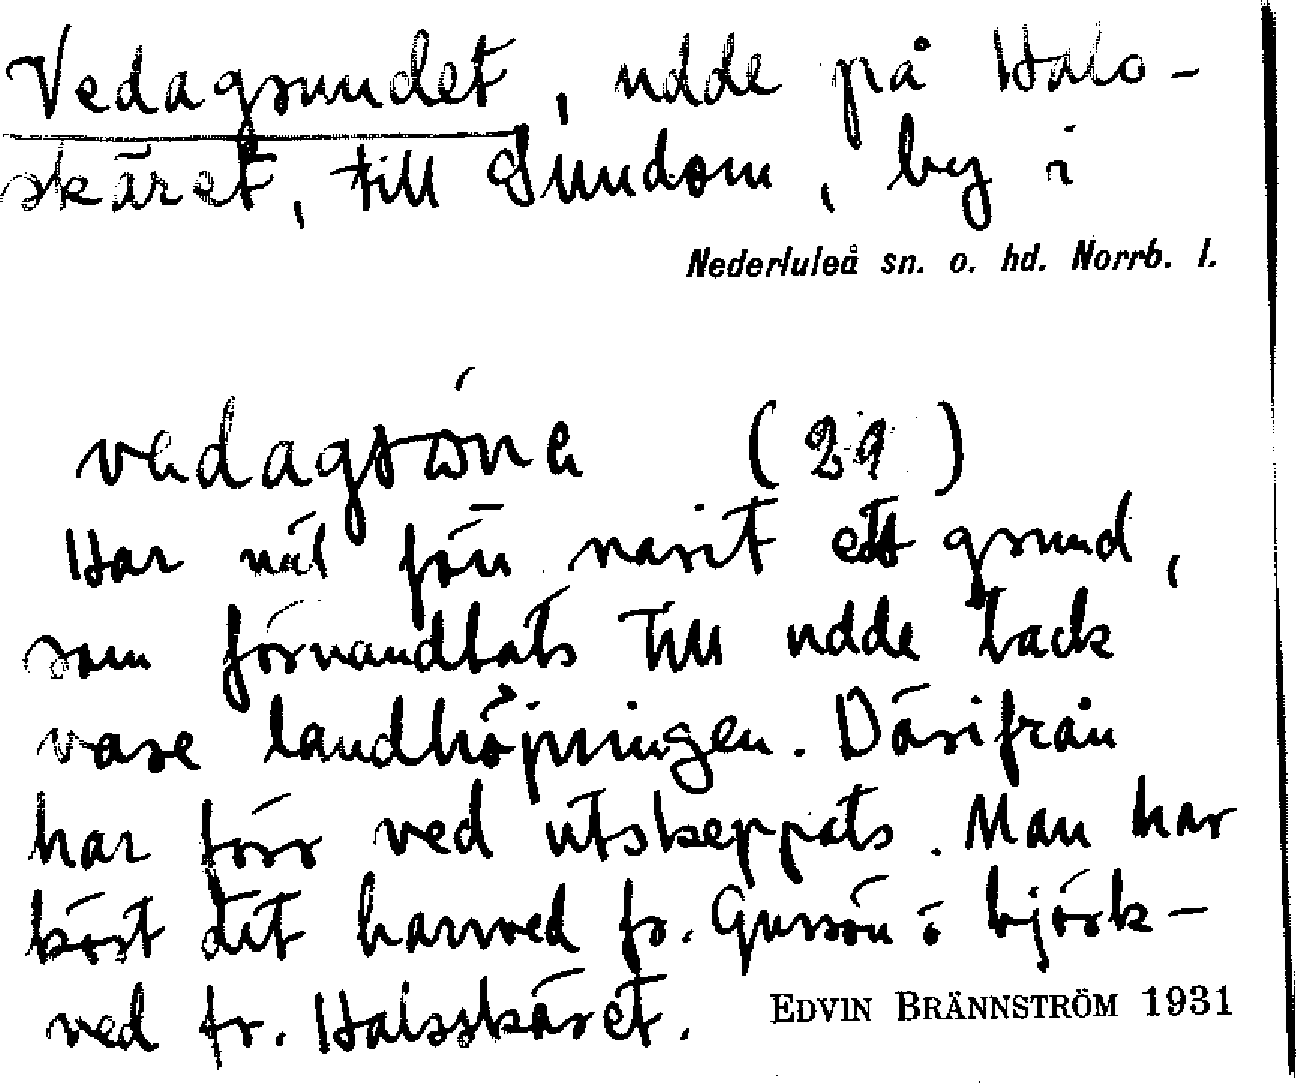 Vedagrundet, udde på Hals-
skäret, till Sundom, by i
Nederluleå sn. o. hd. Norrb. l.
(29)
Har väl förr varit ett grund,
som förvandlats till udde tack
vare landhöjningen. Därifrån
har förr ved utskeppats. Man har
kört dit barrved fr. Gussön o björk-
ved fr. Halsskäret.
EDVIN BRÄNNSTRÖM 1931